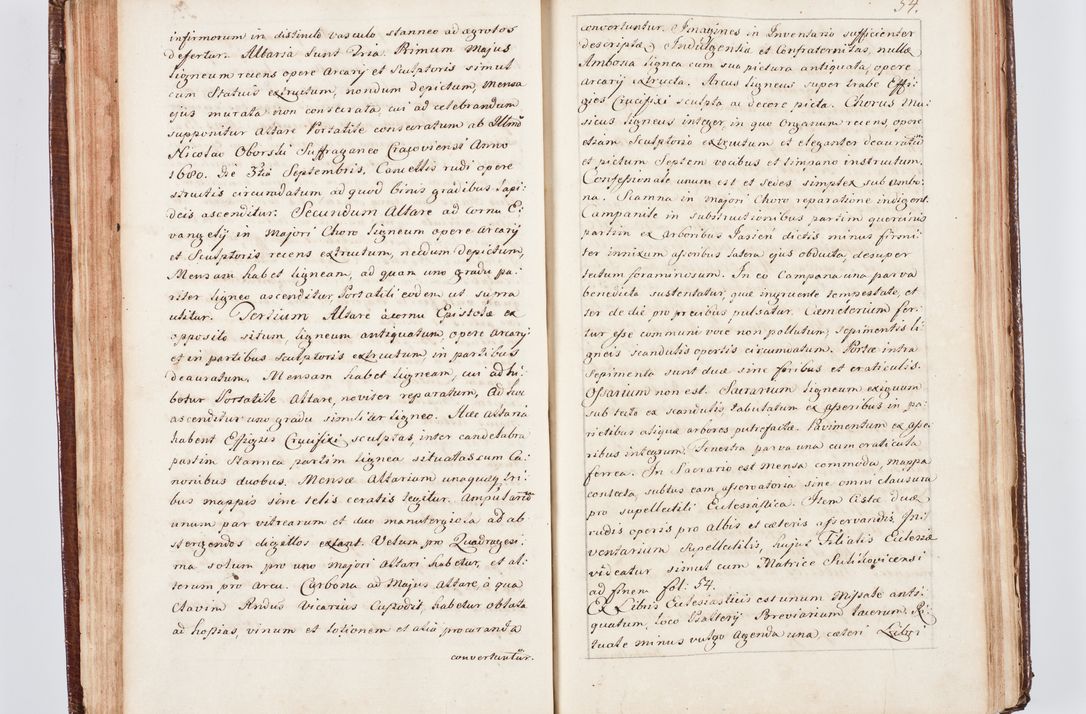 infirmorum in distincto vasculo stanneo ad ægrotos
defertur. Altaria sunt Tria. Primum Majus
ligneum recens opere Arcarij et Sculptoris simul
cum Statuis extructum, nondum depictum, Mensa
ejus murata non consecrata, cui ad celebrandum
supponitur Altare Portatile consecratum ab Illmo
Nicolao Oborski Suffraganeo Cracoviensi Anno
1680. Die 3tia Septembris, Cancellis rudi opere
structis circumdatum ad quod binis gradibus lapi-
deis ascenditur. Secundum Altare ad cornu E-
vangelij in Majori Choro ligneum opere Arcarij
et Sculptoris recens extructum, necdum depictum,
Mensam habet ligneam, ad quam uno gradu pa-
riter ligneo ascenditur, Portatili eodem ut supra
utitur. Tertium Altare à cornu Epistolæ ex
opposito situm, ligneum antiquatum, opere Arcarij
et in partibus Sculptoris extructum, in partibus
deauratum, Mensam habet ligneam, cui adhi-
betur Portatile Altare, noviter reparatum, Ad hoc
ascenditur uno gradu similiter ligneo. Hæc Altaria
habent Effigies Crucifixi sculptas, inter candelabra
partim stannea partim lignea situatas cum Ca-
nonibus duobus. Mensæ Altarium unaquæq tri-
bus mappis sine telis ceratis tegitur. Ampularū
unum par vitrearum et duo manutergiola ad ab-
stergendos digittos extant. Velum pro Quadragesi-
ma solum pro uno Majori Altari habetur, et al-
terum pro Arcu. Carbona ad Majus Altare, à qua
Clavim Rndus Vicarius Custodit habetur oblata
ad hostias, vinum et lotionem et alia procuranda
convertuntur.
54.
convertuntur. Imagines in Inventario sufficienter
descriptæ. Indulgentiæ et Confraternitas, nullæ
Ambona lignea cum sua pictura antiquata, opere
arcarij extructa. Arcus ligneus super trabe Effi-
gies Crucifixi sculpta ac decore picta. Chorus Mu-
sicus ligneus integer, in quo Organum recens, opere
etiam Sculptorio extructum et eleganter deauratū
et pictum Septem vocibus et timpano instructum.
Confessionale unum est et Sedes simplex sub Ambo-
na. Scamna in majori Choro reparatione indigent.
Campanile in substructionibus partim quercinis
partim ex arboribus Jasień dictis minus firmi-
ter innixum asseribus latera ejus obducta, desuper
tectum foraminosum. In eo Campana una parva
benedicta sustentatur, quæ ingruente tempestate, et
ter de die pro precibus pulsatur. Cæmeterium fer-
tur esse communi voce non pollutum, Sepimentis li-
gneis scandulis opertis circumdatum. Portæ intra
Sepimenta sunt duæ sine foribus et craticulis.
Ossarium non est. Sacrarium ligneum exiguum
sub tecto ex scandulis, tabulatum ex asseribus in pa-
rietibus aliquæ arbores putrefactæ. Pavimentum ex asse-
ribus integrum. Fenestra parva una cum craticula
ferrea. In Sacrario est mensa commoda, mappa
contecta, subtus eam asservatoria sine omni clausura
pro supellectili Ecclesiastica. Item Cistæ duæ
rudis operis pro Albis et cæteris asservandis. In-
ventarium Supellectilis, hujus Filialis Ecclesiæ
videatur simul cum Matrice Sulikovicensi
ad finem fol. 54.
Ex Libris Ecclesiasticis est unum Missale anti-
quatum, loco Psalterij Breviarium lacerum. Ri-
tuale minus vulgo Agenda una, cæteri Libri